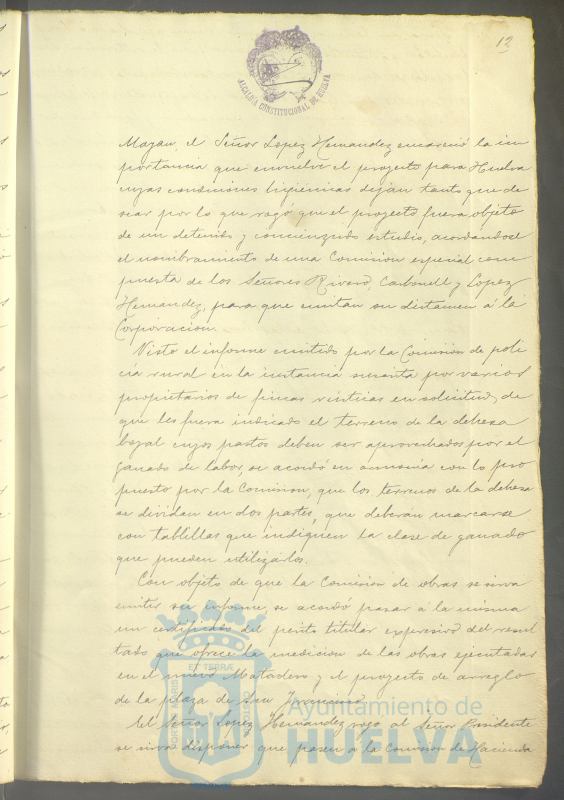 12
ALCALDIA CONSTITUCIONAL DE HUELVA
Mazan, el Señor Lopez Hernandez encareció la im
portancia que envuelve el proyecto para Huelva
cuyas condiciones higiénicas dejan tanto que de
sear por lo que rogó que el proyecto fuera objeto
de un detenido y concienzudo estudio, acordandose
el nombramiento de una Comision especial com
puesta de los Señores Rivero, Carbonell y Lopez
Hernandez, para que emitan su dictamen á la
Corporacion.
Visto el informe emitido por la Comisión de poli
cia rural en la instancia suscrita por varios
propietarios de fincas rusticas en solicitud de
que les fuera indicado el terreno de la dehesa
boyal cuyos pastos deben ser aprovechados por el
ganado de labor, se acordó en armonia con lo pro
puesto por la Comision, que los terrenos de la dehesa
se dividan en dos partes, que deberán marcarse
con tablillas que indiquen la clase de ganado
que pueden utilizarlos.
Con objeto de que la Comision de obras se sirva
emitir su informe se acordó pasar á la misma
un certificado del perito titular expresivo del resul
tado que ofrece la medicion de las obras ejecutadas
en el nuevo Matadero y el proyecto de arreglo
de la plaza de San
El Señor Lopez Hernandez rogó al Señor Presidente
se sirva disponer que pasen á la Comision de Hacienda
Ayuntamiento de
HUELVA